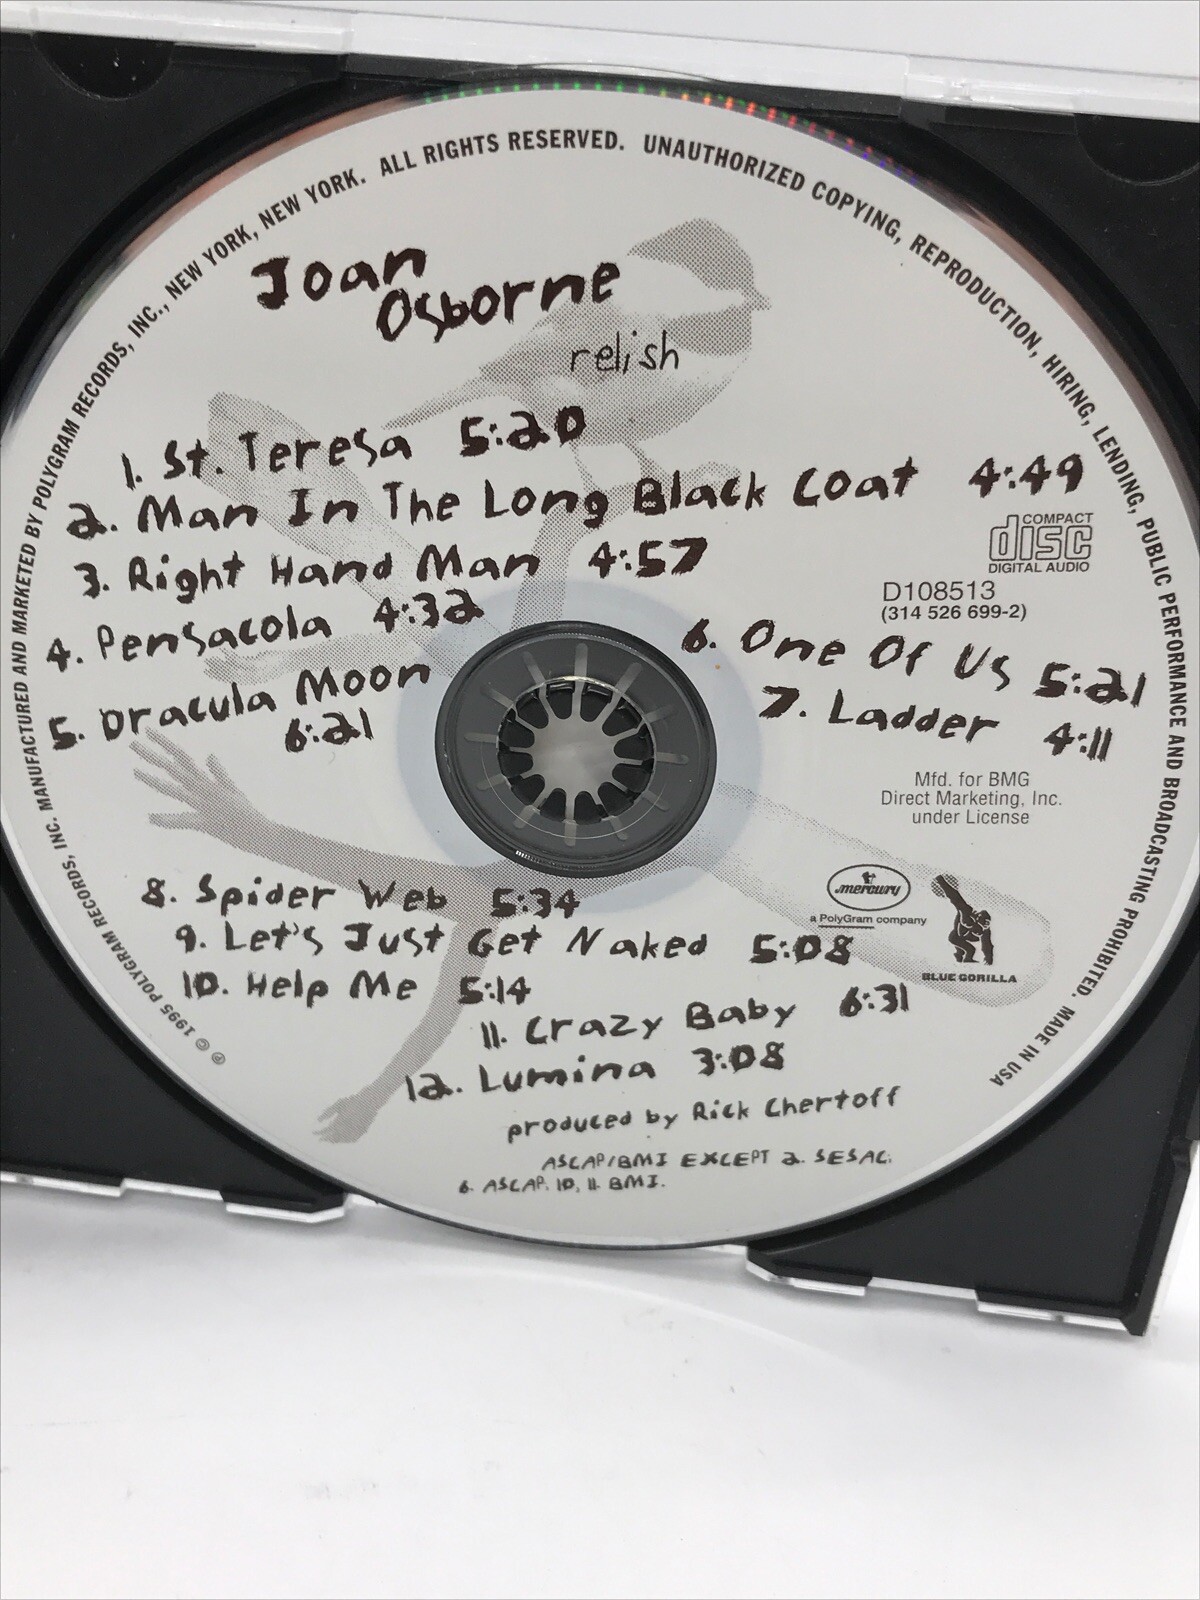 Joan
Osborne
relish
1. St. Teresa 5:20
2. Man In The Long Black Coat 4:49
3. Right Hand Man 4:57
4. Pensacola 4:32
5. Dracula Moon
6:21
COMPACT
disc
DIGITAL AUDIO
D108513
(314 526 699-2)
6. One Of Us 5:21
7. Ladder 4:11
Mfd. for BMG
Direct Marketing, Inc.
under License
mercury
a PolyGram company
BLUE GORILLA
8. Spider Web 5:34
9. Let's Just Get Naked 5:08
10. Help Me 5:14
11. Crazy Baby 6:31
12. Lumina 3:08
produced by Rick Chertoff
ASCAP/BMI EXCEPT 2. SESAC.
6. ASCAP. 10, 11. BMI.
℗ © 1995 POLYGRAM RECORDS, INC. MANUFACTURED AND MARKETED BY POLYGRAM RECORDS, INC., NEW YORK, NEW YORK. ALL RIGHTS RESERVED. UNAUTHORIZED COPYING, REPRODUCTION, HIRING, LENDING, PUBLIC PERFORMANCE AND BROADCASTING PROHIBITED. MADE IN USA